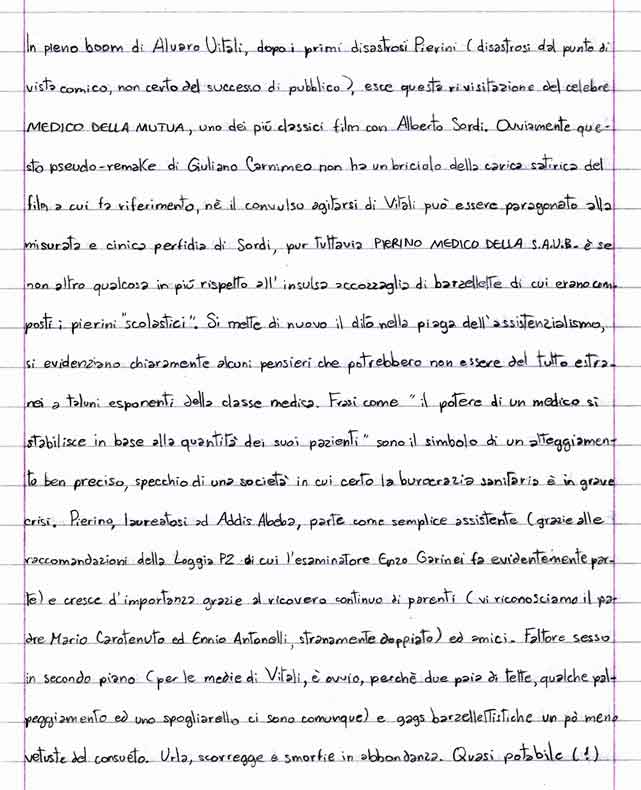 In pieno boom di Alvaro Vitali, dopo i primi disastrosi Pierini (disastrosi dal punto di
vista comico, non certo del successo di pubblico), esce questa rivisitazione del celebre
MEDICO DELLA MUTUA, uno dei più classici film con Alberto Sordi. Ovviamente que-
sto pseudo-remake di Giuliano Carnimeo non ha un briciolo della carica satirica del
film a cui fa riferimento, nè il convulso agitarsi di Vitali può essere paragonato alla
misurata e cinica perfidia di Sordi, pur tuttavia PIERINO MEDICO DELLA S.A.U.B. è se
non altro qualcosa in più rispetto all'insulsa accozzaglia di barzellette di cui erano com-
posti i pierini "scolastici". Si mette di nuovo il dito nella piaga dell'assistenzialismo,
si evidenziano chiaramente alcuni pensieri che potrebbero non essere del tutto estra-
nei a taluni esponenti della classe medica. Frasi come "il potere di un medico si
stabilisce in base alla quantità dei suoi pazienti" sono il simbolo di un atteggiamen-
to ben preciso, specchio di una società in cui certo la burocrazia sanitaria è in grave
crisi. Pierino, laureatosi ad Addis Abeba, parte come semplice assistente (grazie alle
raccomandazioni della Loggia P2 di cui l'esaminatore Enzo Garinei fa evidentemente par-
te) e cresce d'importanza grazie al ricovero continuo di parenti (vi riconosciamo il pa-
dre Mario Carotenuto ed Ennio Antonelli, stranamente doppiato) ed amici. Fattore sesso
in secondo piano (per le medie di Vitali, è ovvio, perchè due paia di tette, qualche pal-
peggiamento ed uno spogliarello ci sono comunque) e gags barzellettistiche un pò meno
vetuste del consueto. Urla, scorregge e smorfie in abbondanza. Quasi potabile (!)